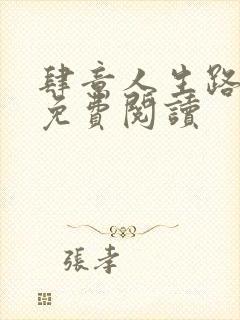 肆意人生路
免費閱讀
張孝